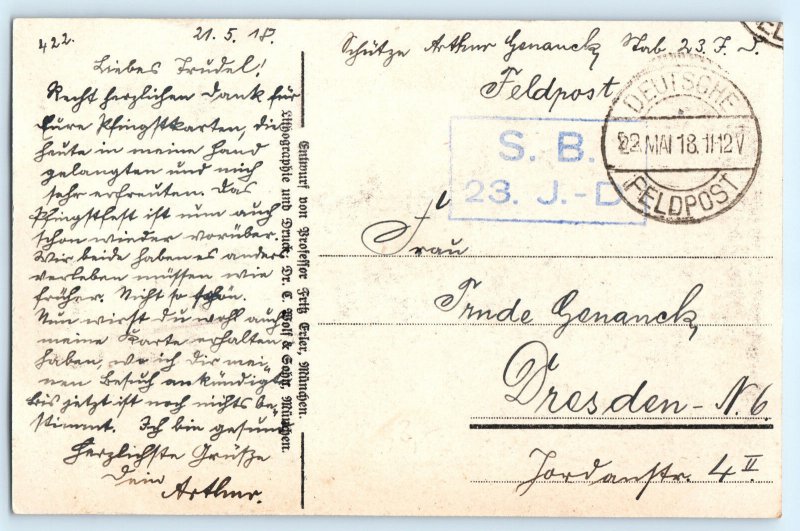 422.
21. 5. 18.
Liebes Trudel!
Recht herzlichen Dank für
Eure Pfingstkarten, die
heute in meine Hand
gelangten und mich
sehr erfreuten. Das
Pfingstfest ist nun auch
schon wieder vorüber.
Wir beide haben es anders
verleben müssen wie
früher. Nicht so schön.
Nun wirst du wohl auch
meine Karte erhalten
haben, wo ich dir mei-
nen Besuch ankündigte
Bis jetzt ist noch nichts be-
stimmt. Ich bin gesund
Herzlichste Grüße
Dein
Arthur.
Entwurf von Professor Fritz Erler, München.
Lithographie und Druck: Dr. C. Wolf & Sohn, München.
Schütze Arthur Genanck, Stab 23. J. D.
Feldpost
S. B.
23. J.-D
DEUTSCHE
22 MAI 18. 11-12 V
FELDPOST
Frau
Trude Genanck,
Dresden-N. 6
Jordanstr. 4 II